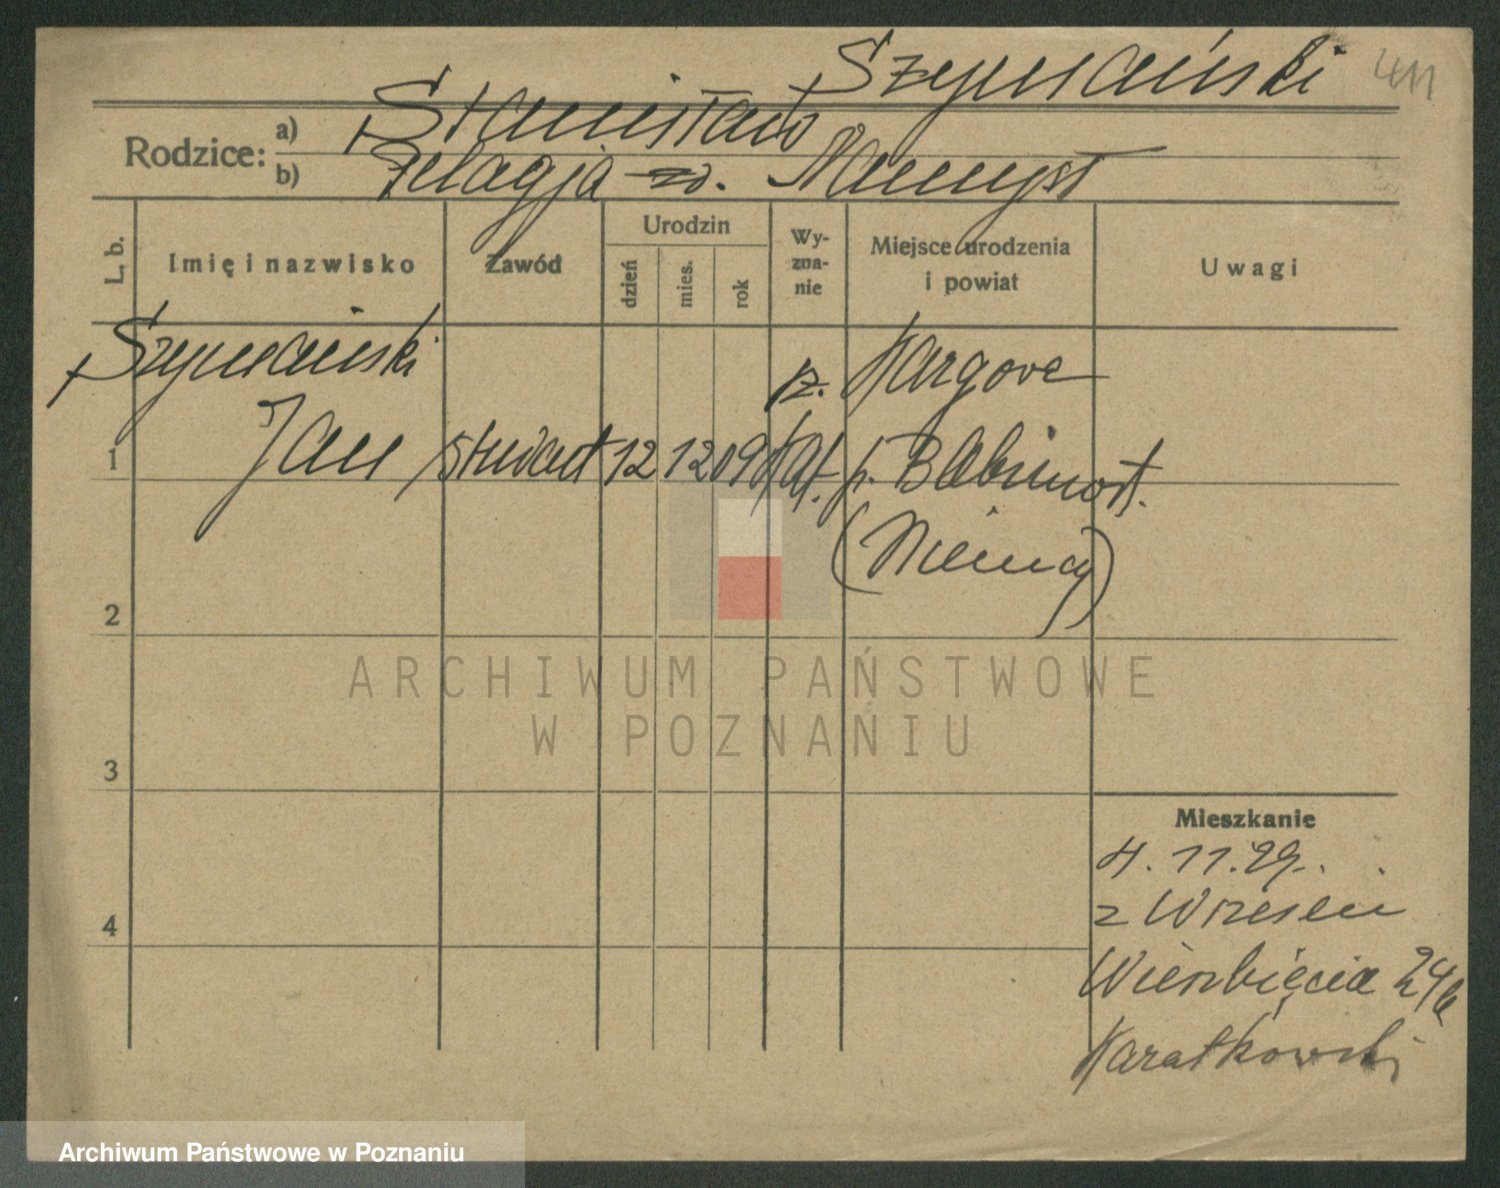 Szymański 411
Rodzice: a) Stanisław
b) Pelagja zd. Namysł
L. b.
Imię i nazwisko
Zawód
Urodzin
dzień
mies.
rok
Wy-
zna-
nie
Miejsce urodzenia
i powiat
Uwagi
Szymański
rz. Kargowa
1 Jan student 12 12 09 kat. p. Babimost.
(Niemcy)
2
3
4
Mieszkanie
4. 11. 29.
z Wrześni
Wierzbięcia 24b
Karatkowski
ARCHIWUM PAŃSTWOWE
W POZNANIU
Archiwum Państwowe w Poznaniu